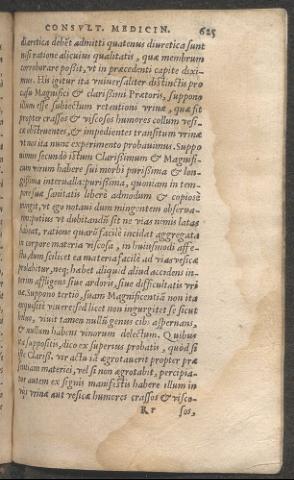 CONSVLT. MEDICIN. 625
diuretica debēt admitti quatenus diuretica sunt
nisi ratione alicuius qualitatis, quæ membrum
corroborare possit, vt in præcedenti capite diximus.
His igitur ita vniuersaliter distinctis pro
casu Magnifici & clarissimi Prætoris, suppono
illum esse subiectum retentioni vrinæ, quæ sit
propter crassos & viscosos humores collum vesicæ
obstruentes, & impedientes transitum vrinæ
vt nos ita nunc experimento probauimus. Suppo
nimus secundò istum Clarissimum & Magnifi-
cum virum habere sui morbi purissima & lon-
gissima interualla: purissima, quoniam in tem-
pore suæ sanitatis liberè admodum & copiosè
mingit, vt ego notaui dum mingentem obserua-
potius vt dubitandū sit ne vias nimis latas
habeat, ratione quarū facilè incidat aggregata
in corpore materia viscosa, in huiusmodi affe-
ctū, dum scilicet ea materia facilè ad vias vesicæ
prolabitur, neq; habet aliquid aliud accedens in-
terim affligens siue ardoris, siue difficultatis vri
næ. Suppono tertio, suam Magnificentiā non ita
exquisitè viuere: sed licet non ingurgitet se ficut
viuit tamen nullū genus cibi aspernans,
& nullum habens vinorum delectum. Quibus
ita suppositis, dico ex superius probatis, quòd si
iste Clariss. vir actu iā ægrotauerit propter præ
sentiam materiei, vel si non ægrotabit, percipia-
tur autem ex signis manifestis habere illum in
vijs vrinæ aut vesicæ humores crassos & visco-
R r sos,